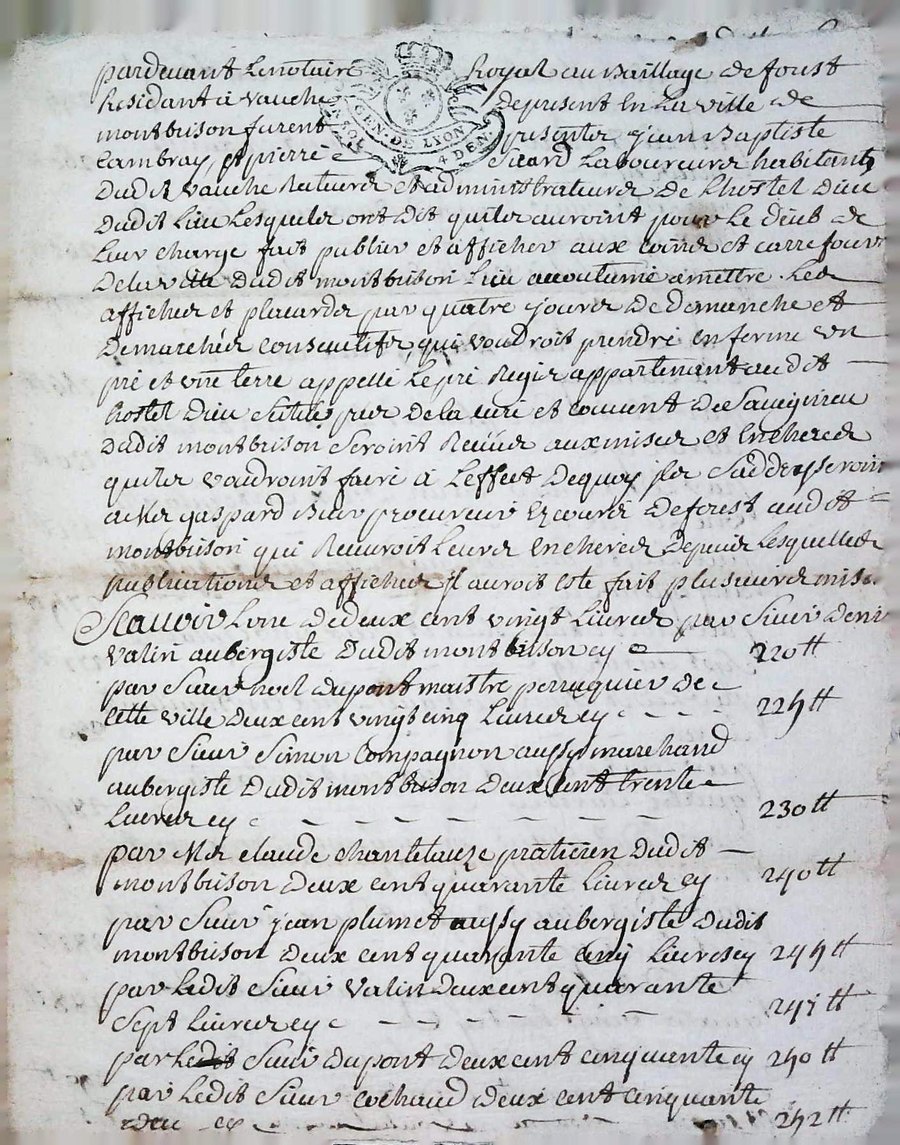 pardevant Lenotaire Royal au Baillage deforest
Residant a Vauche depresent En La ville de
GEN. DE LYON
4 DEN.
montbrison furent presents jean Baptiste
Cambray, et pierre Sicard Laboureurs habitants
Dudit Vauche Recteurs et administrateurs De Lhostel dieu
Dudit Lieu Lesquels ont dit quils auroint pour Le deub de
Leur charge fait publier et afficher aux coins et carrefours
Delaville Dudit montbrison Lieu accoutumé amettre Les
affiches et placards par quatre jours De demanche et
Demarchés consecutifs, qui voudroit prendre en ferme un
pré et une terre appellé Lepré appartenant audit
hostel Dieu Situés Dela et couvent de
Dudit montbrison Seroint Receües aux mises et Encheres
quils Voudroint faire à Leffect Dequoy ils Saddresseroint
a Me gaspard procureur Ez cours Deforest audit
montbrison qui Recevroit Leurs Encheres Depuis Lesquelles
publications et affiches jl auroit esté fait plusieurs mises
Scauoir Lune Dedeux cent vingt Livres par Sieur denis
Valin aubergiste Dudit montbrison cy 220 tt
par Sieur noel dupont maistre perruquier de
cette ville Deux cent vingt cinq Livres cy 225 tt
par Sieur Simon Compagnon aussy marchand
aubergiste Dudit montbrison Deux Cent trente
Livres cy 230 tt
par Me claude chantelauze praticien Dudit
montbrison Deux cent quarante Livres cy 240 tt
par Sieur jean plumet aussy aubergiste Dudit
montbrison Deux cent quarante cinq Livres cy 245 tt
par Ledit Sieur Valin Deux cent quarante
Sept Livres cy 247 tt
par Ledit Sieur Dupont Deux cent cinquante cy 250 tt
par Ledit Sieur cochaud deux cent cinquante
deux cy 252 tt